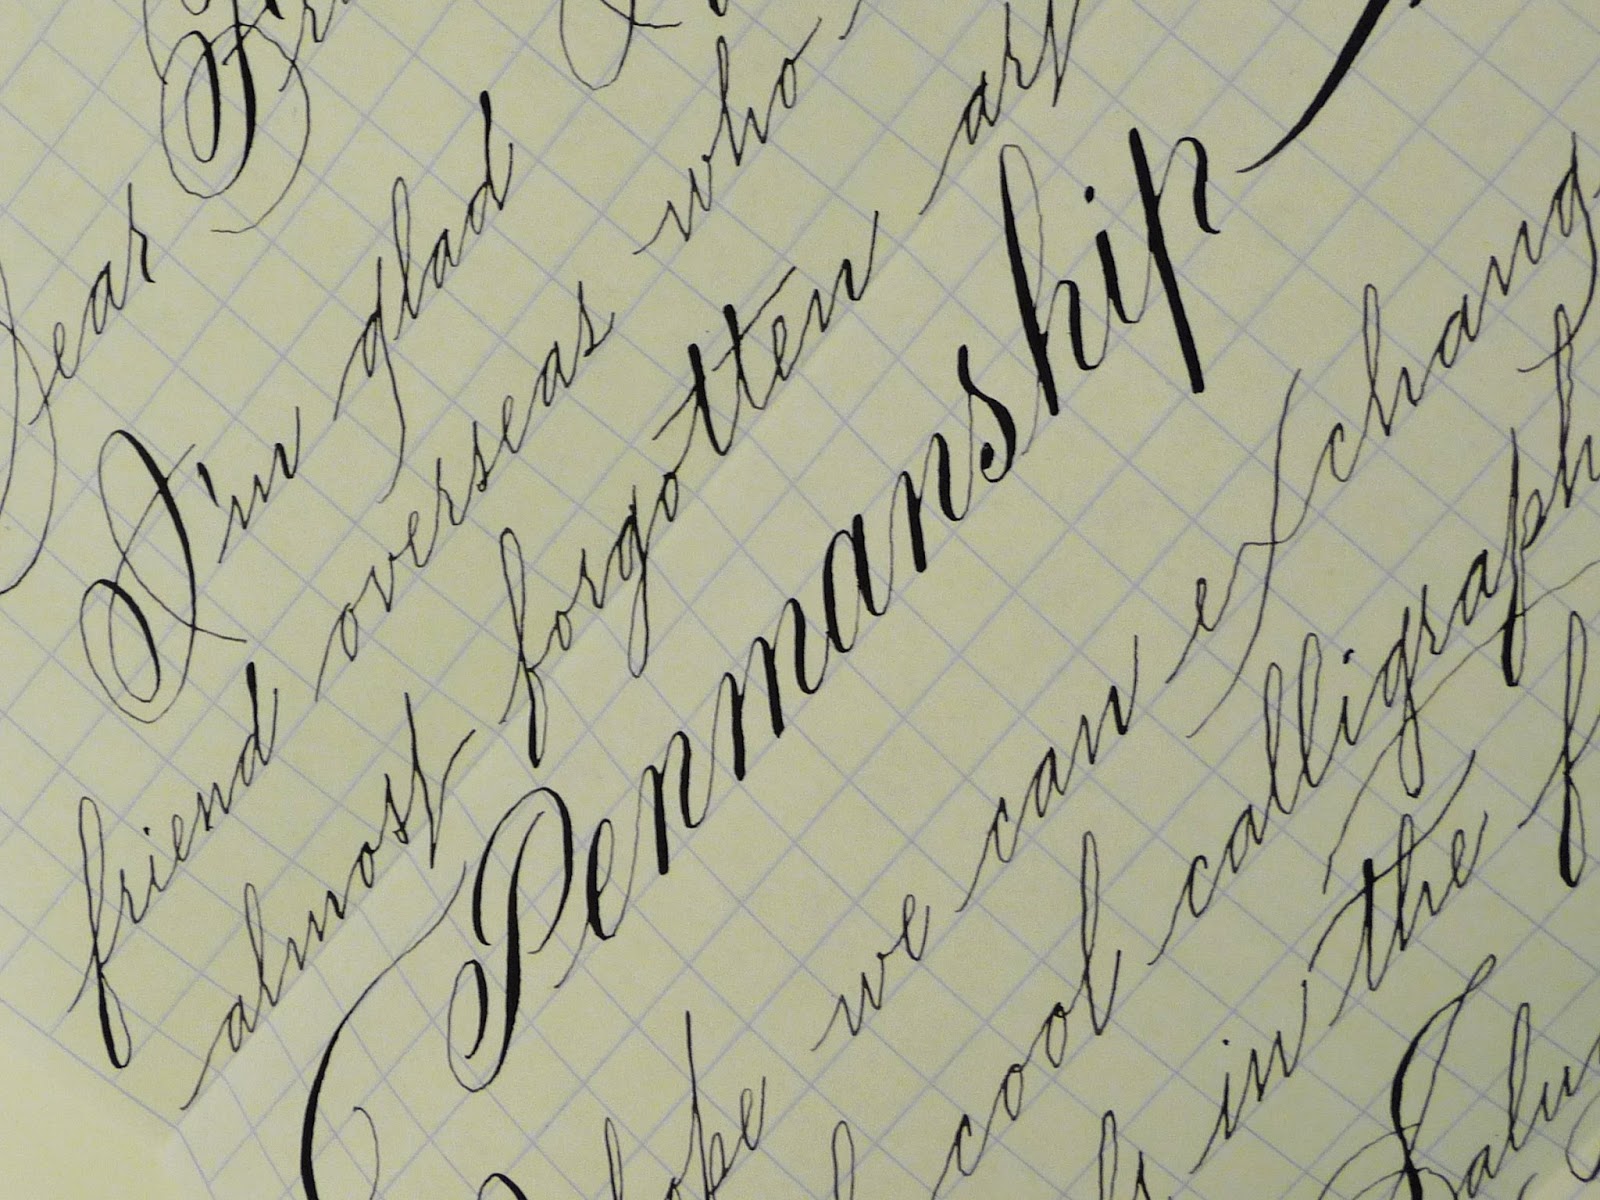 Dear
I'm glad
friend overseas who
almost forgotten art
Penmanship
hope we can exchang
cool calligraph
in the f